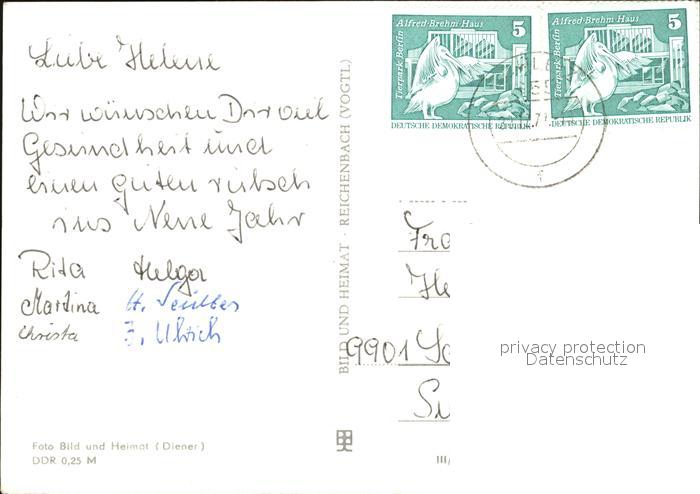 Liebe Helene
Wir wünschen Dir viel
Gesundheit und
einen guten rutsch
ins Neue Jahr
Rita Helga
Martina H.
Christa I. Ulbrich
Foto Bild und Heimat (Diener)
DDR 0,25 M
BILD UND HEIMAT · REICHENBACH (VOGTL)
III/
Alfred-Brehm-Haus 5
Tierpark Berlin
DEUTSCHE DEMOKRATISCHE REPUBLIK
Alfred-Brehm-Haus 5
Tierpark Berlin
DEUTSCHE DEMOKRATISCHE REPUBLIK
Fra
He
9901
privacy protection
Datenschutz